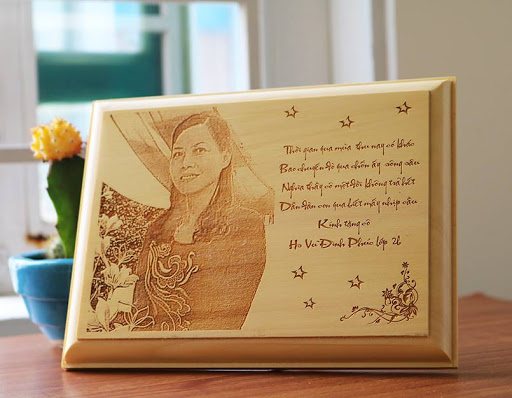 Thời gian qua mùa thu nay có khác
Bao chuyến đò qua chốn ấy sông sâu
Nghĩa thầy cô một đời không trả hết
Dẫn dắt con qua biết mấy nhịp cầu
Kính tặng cô
Ho Vũ Đình Phúc lớp 2b